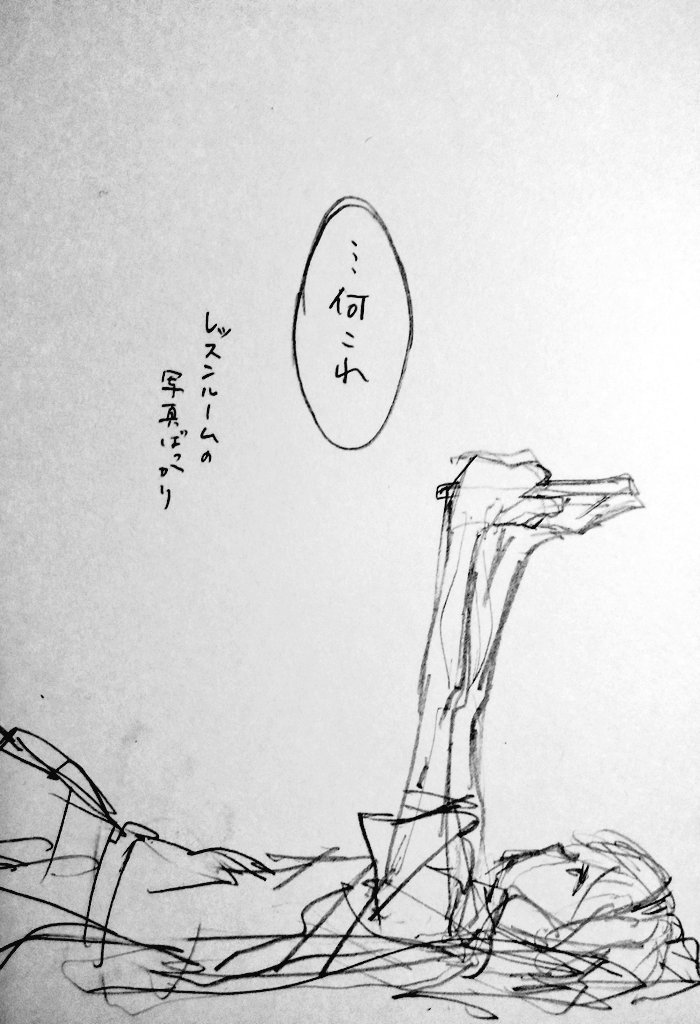 …何これ
レッスンルームの
写真ばっかり